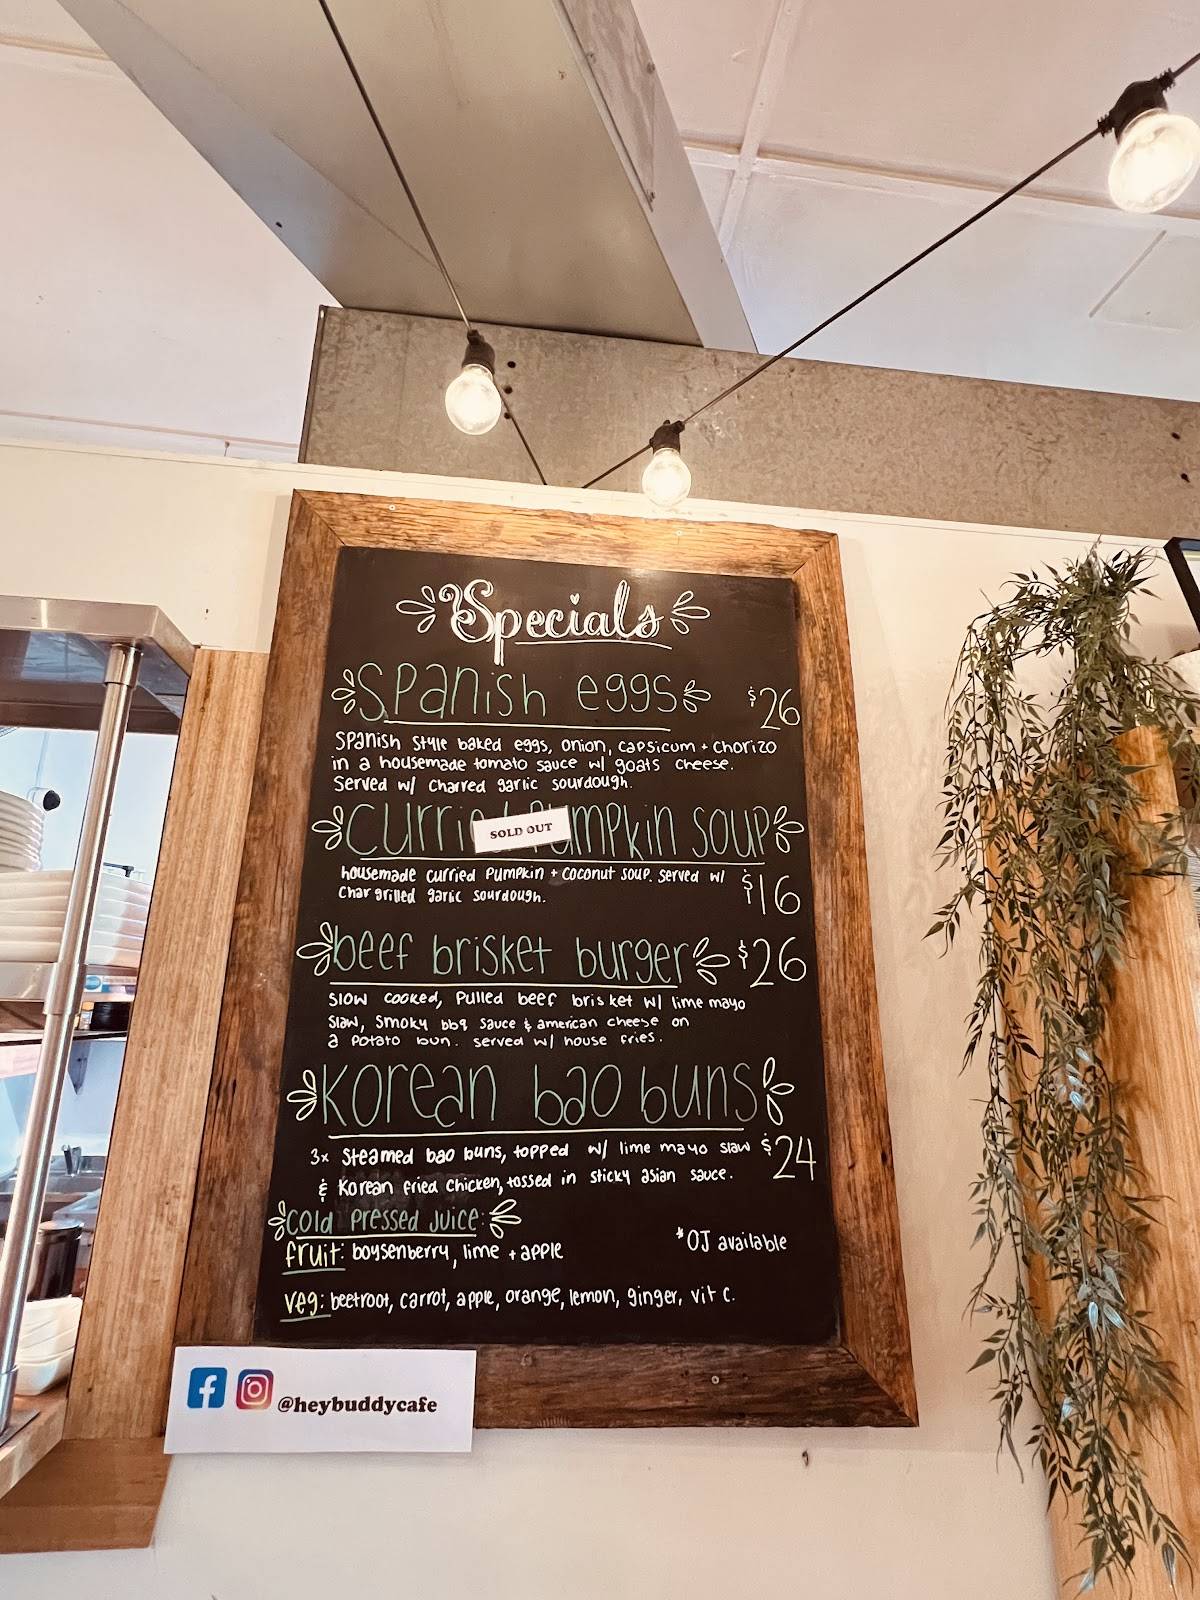 Specials
Spanish eggs $26
Spanish style baked eggs, onion, capsicum + chorizo
in a housemade tomato sauce w/ goats cheese.
Served w/ charred garlic sourdough.
Curried Pumpkin soup
SOLD OUT
housemade curried pumpkin + coconut soup. served w/ $16
chargrilled garlic sourdough.
beef brisket burger $26
slow cooked, pulled beef brisket w/ lime mayo
slaw, smoky bbq sauce & american cheese on
a potato bun. served w/ house fries.
Korean bao buns
3x steamed bao buns, topped w/ lime mayo slaw $24
& Korean fried chicken, tossed in sticky asian sauce.
Cold pressed juice:
fruit: boysenberry, lime + apple
*OJ available
veg: beetroot, carrot, apple, orange, lemon, ginger, vit c.
@heybuddycafe